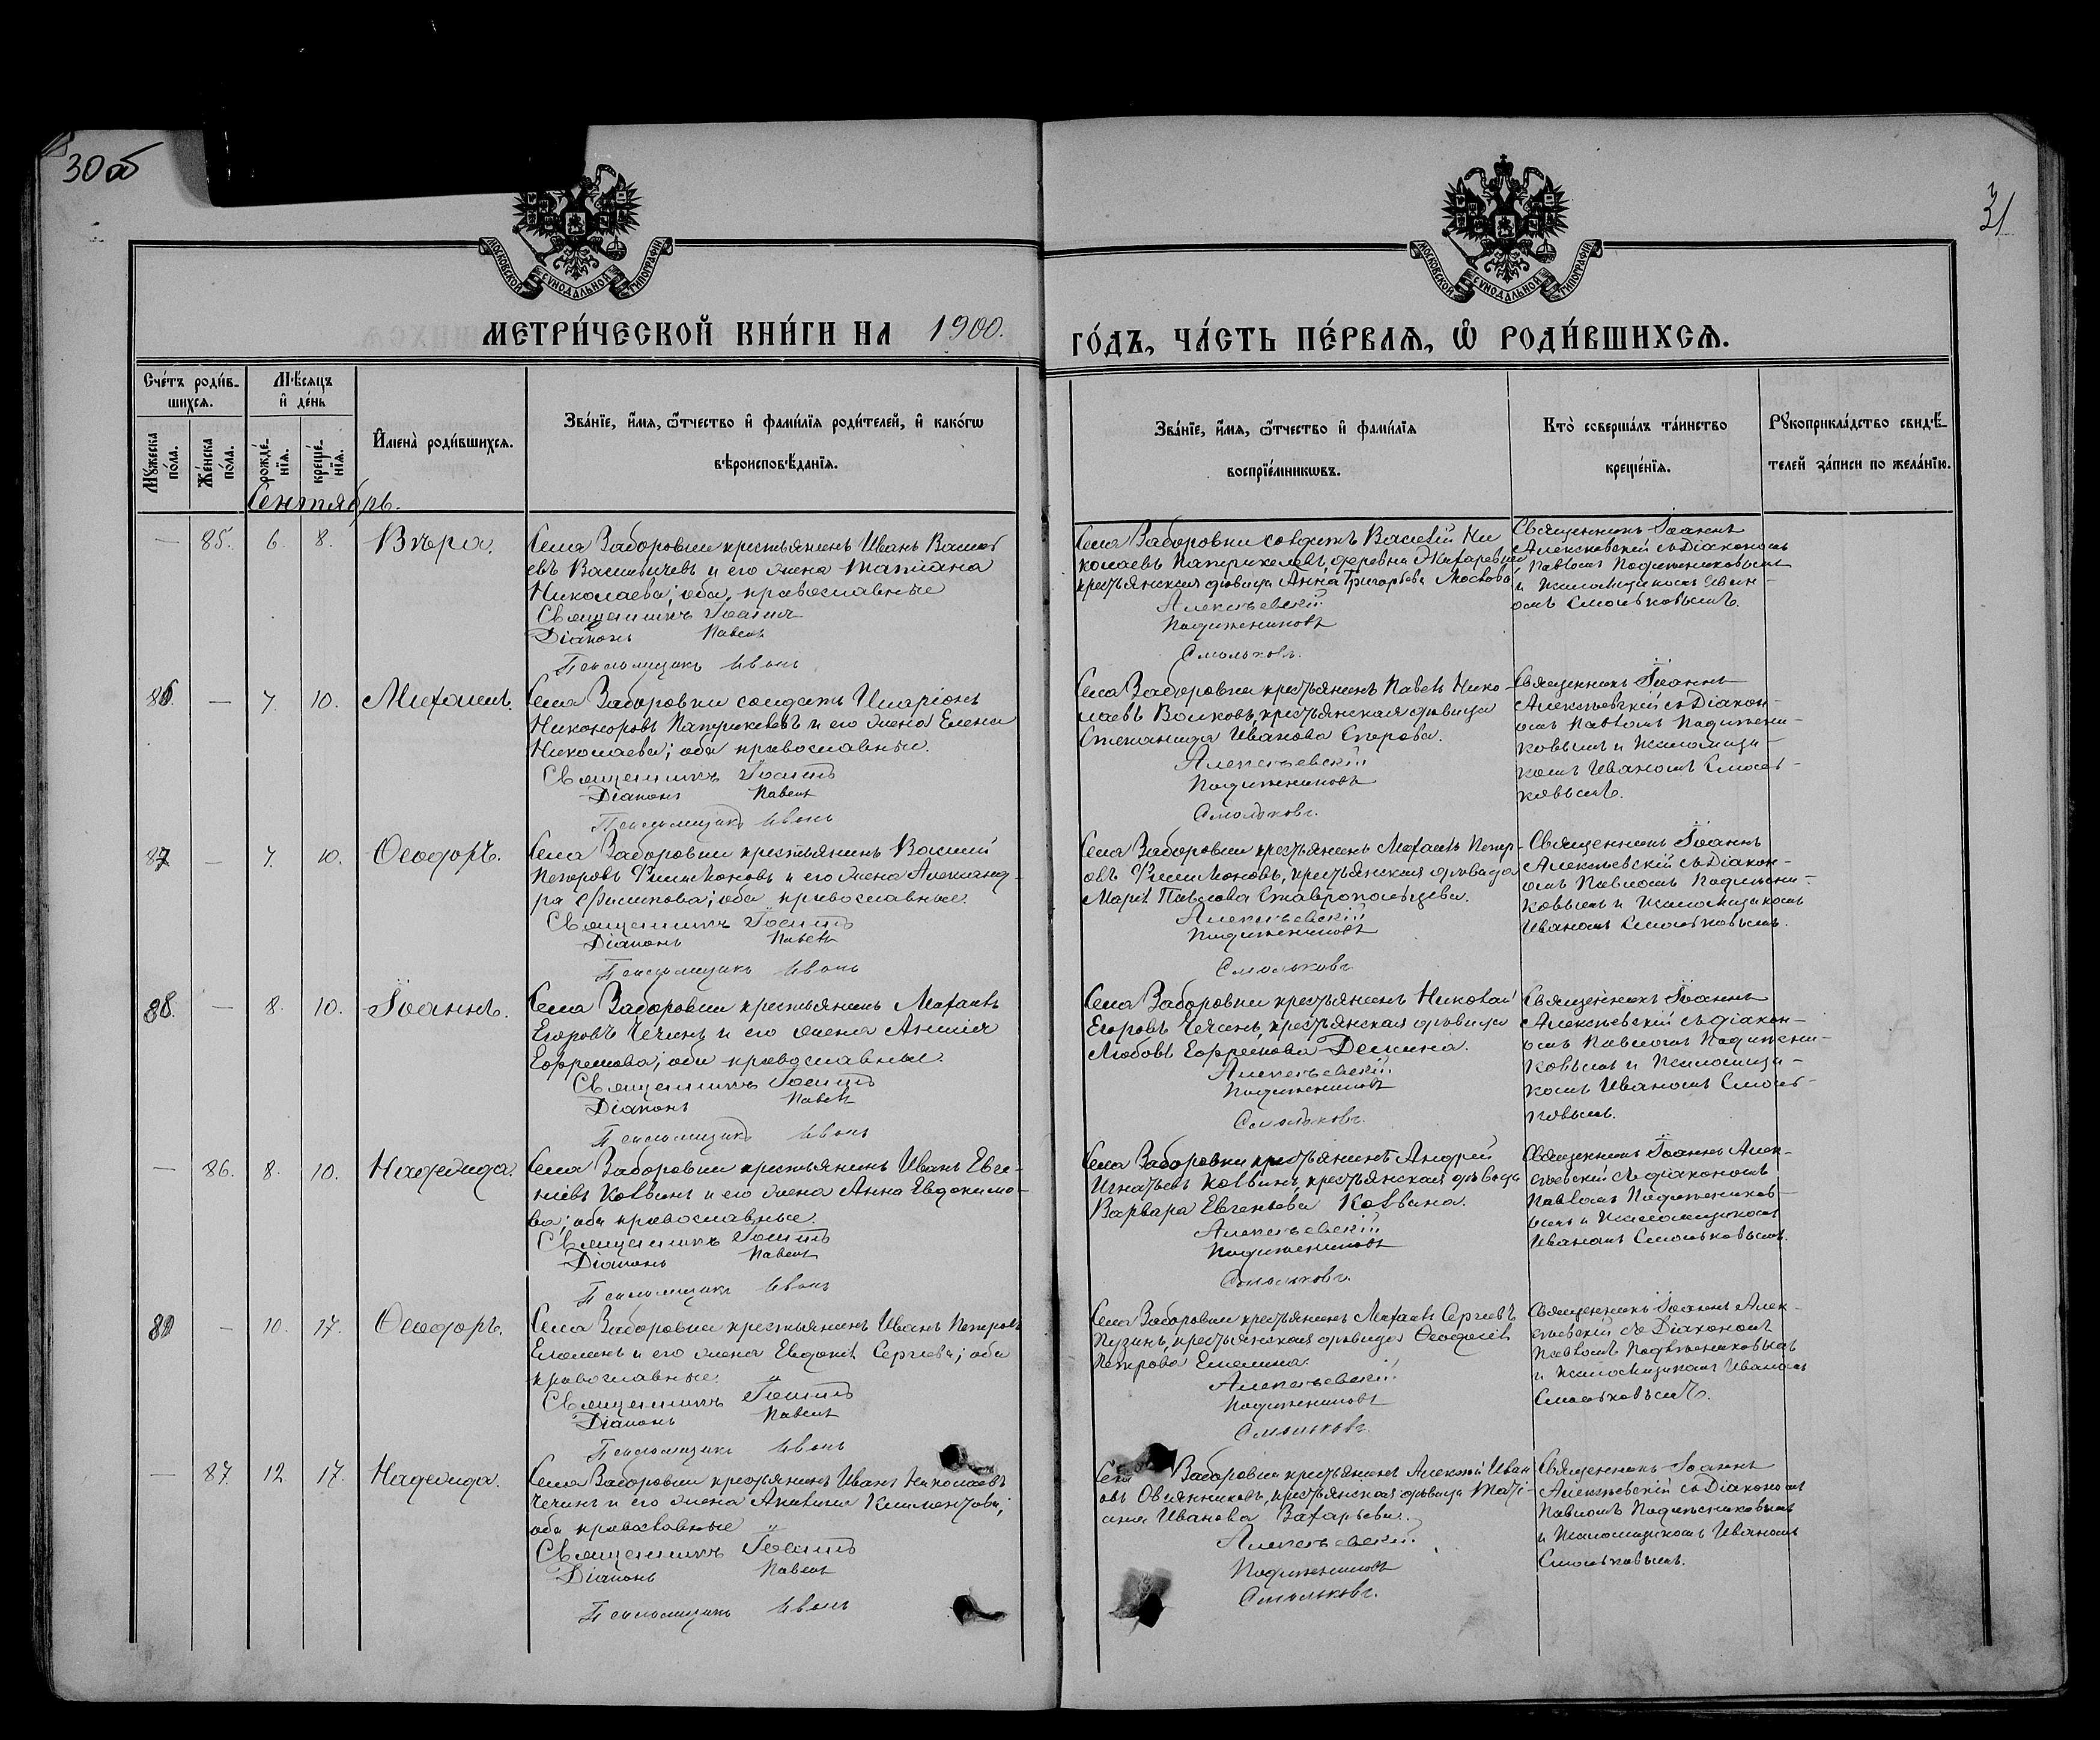 30 об
31
МОСКОВСКОЙ СѴНОДАЛЬНОЙ ТИПОГРАФІИ
МОСКОВСКОЙ СѴНОДАЛЬНОЙ ТИПОГРАФІИ
МЕТРИ́ЧЕСКОЙ КНИ́ГИ НА 1900.
ГО́ДЪ, ЧА́СТЬ ПЕ́РВАѦ, Ѽ РОДИ́ВШИХСѦ.
Сче́тъ роди́в-
шихсѧ.
Мѣ́сѧцъ
и҆ де́нь
Мꙋ́жеска
по́ла.
Же́нска
по́ла.
рожде́-
нїѧ.
креще́-
нїѧ.
И҆мена̀ роди́вшихсѧ.
Зва́нїе, и҆́мѧ, ѻ҆́тчество и҆ фами́лїѧ роди́телей, и҆ како́гѡ
вѣроисповѣ́данїѧ.
Зва́нїе, и҆́мѧ, ѻ҆́тчество и҆ фами́лїѧ
воспрїе́мникѡвъ.
Кто̀ соверша́лъ та́инство
креще́нїѧ.
Рꙋкоприкла́дство свидѣ́-
телей за́писи по жела́нїю.
Сентябрь.
— 85. 6. 8. Вѣра.
Села Заборовки крестьянинъ Иванъ Василь
евъ Василичевъ и его жена Татіана
Николаева; оба православные
Священникъ Іоаннъ
Діаконъ Павелъ
Псаломщикъ Иванъ
Села Заборовки солдатъ Василій Ни
колаевъ Патрикеевъ, деревни
крестьянская дѣвица Анна Григорьева
Алексѣевскій
Подъжениковъ
Смольковъ.
Священникъ Іоаннъ
Алексѣевскій съ Діакономъ
Павломъ Подъжениковымъ
и Псаломщикомъ Иван-
омъ Смольковымъ.
86. — 7. 10. Михаилъ.
Села Заборовки солдатъ Иларіонъ
Никоноровъ Патрикеевъ и его жена Елена
Николаева; оба православные.
Священникъ Іоаннъ
Діаконъ Павелъ
Псаломщикъ Иванъ
Села Заборовки крестьянинъ Павелъ Нико-
лаевъ Волковъ, крестьянская дѣвица
Степанида Иванова Егорова.
Алексѣевскій
Подъжениковъ
Смольковъ.
Священникъ Іоаннъ
Алексѣевскій съ Діакон-
омъ Павломъ Подъжени-
ковымъ и Псаломщи-
комъ Иваномъ Смоль-
ковымъ.
87 — 7. 10. Ѳеодоръ.
Села Заборовки крестьянинъ Василій
Петровъ Филимоновъ и его жена Александ-
ра Филипова; оба православные
Священникъ Іоаннъ
Діаконъ Павелъ
Псаломщикъ Иванъ
Села Заборовки крестьянинъ Михаилъ Петр-
овъ Филимоновъ, крестьянская дѣвица
Марія Павлова Ставропольцева.
Алексѣевскій
Подъжениковъ
Смольковъ
Священникъ Іоаннъ
Алексѣевскій съ Діакон-
омъ Павломъ Подъжени-
ковымъ и Псаломщикомъ
Иваномъ Смольковымъ.
88. — 8. 10. Іоаннъ.
Села Заборовки крестьянинъ Михаилъ
Егоровъ Чечинъ и его жена Анисія
Ефремова; оба православные.
Священникъ Іоаннъ
Діаконъ Павелъ
Псаломщикъ Иванъ
Села Заборовки крестьянинъ Николай
Егоровъ Чечинъ, крестьянская дѣвица
Любовь Ефремова Демина.
Алексѣевскій
Подъжениковъ
Смольковъ.
Священникъ Іоаннъ
Алексѣевскій съ діакон-
омъ Павломъ Подъжени-
ковымъ и Псаломщи-
комъ Иваномъ Смоль-
ковымъ.
— 86. 8. 10. Надежда.
Села Заборовки крестьянинъ Иванъ Евге-
ніевъ Ковинъ и его жена Анна Евдокимо-
ва; оба православные.
Священникъ Іоаннъ
Діаконъ Павелъ
Псаломщикъ Иванъ
Села Заборовки крестьянинъ Андрей
Игнатьевъ Ковинъ, крестьянская дѣвица
Варвара Евгеньева Ковина.
Алексѣевскій
Подъжениковъ
Смольковъ.
Священникъ Іоаннъ Алек-
сѣевскій съ діакономъ
Павломъ Подъжеников-
ымъ и Псаломщикомъ
Иваномъ Смольковымъ.
89 — 10. 17. Ѳеодоръ.
Села Заборовки крестьянинъ Иванъ Петровъ
Емелинъ и его жена Евдокія Сергѣева; оба
православные.
Священникъ Іоаннъ
Діаконъ Павелъ
Псаломщикъ Иванъ
Села Заборовки крестьянинъ Михаилъ Сергѣевъ
Пузинъ, крестьянская дѣвица Ѳеодосія
Петрова Емелина.
Алексѣевскій
Подъжениковъ
Смольковъ.
Священникъ Іоаннъ Алек-
сѣевскій съ Діакономъ
Павломъ Подъжениковымъ
и Псаломщикомъ Иваномъ
Смольковымъ.
— 87. 12 17. Надежда.
Села Заборовки крестьянинъ Иванъ Николаевъ
Чечинъ и его жена Климентова;
оба православные
Священникъ Іоаннъ
Діаконъ Павелъ
Псаломщикъ Иванъ
Села Заборовки крестьянинъ Алексѣй Иван
овъ Овсянниковъ, крестьянская дѣвица Таті-
ана Иванова Захарьева.
Алексѣевскій.
Подъжениковъ
Смольковъ.
Священникъ Іоаннъ
Алексѣевскій съ Діакономъ
Павломъ Подъжениковымъ
и Псаломщикомъ Иваномъ
Смольковымъ.